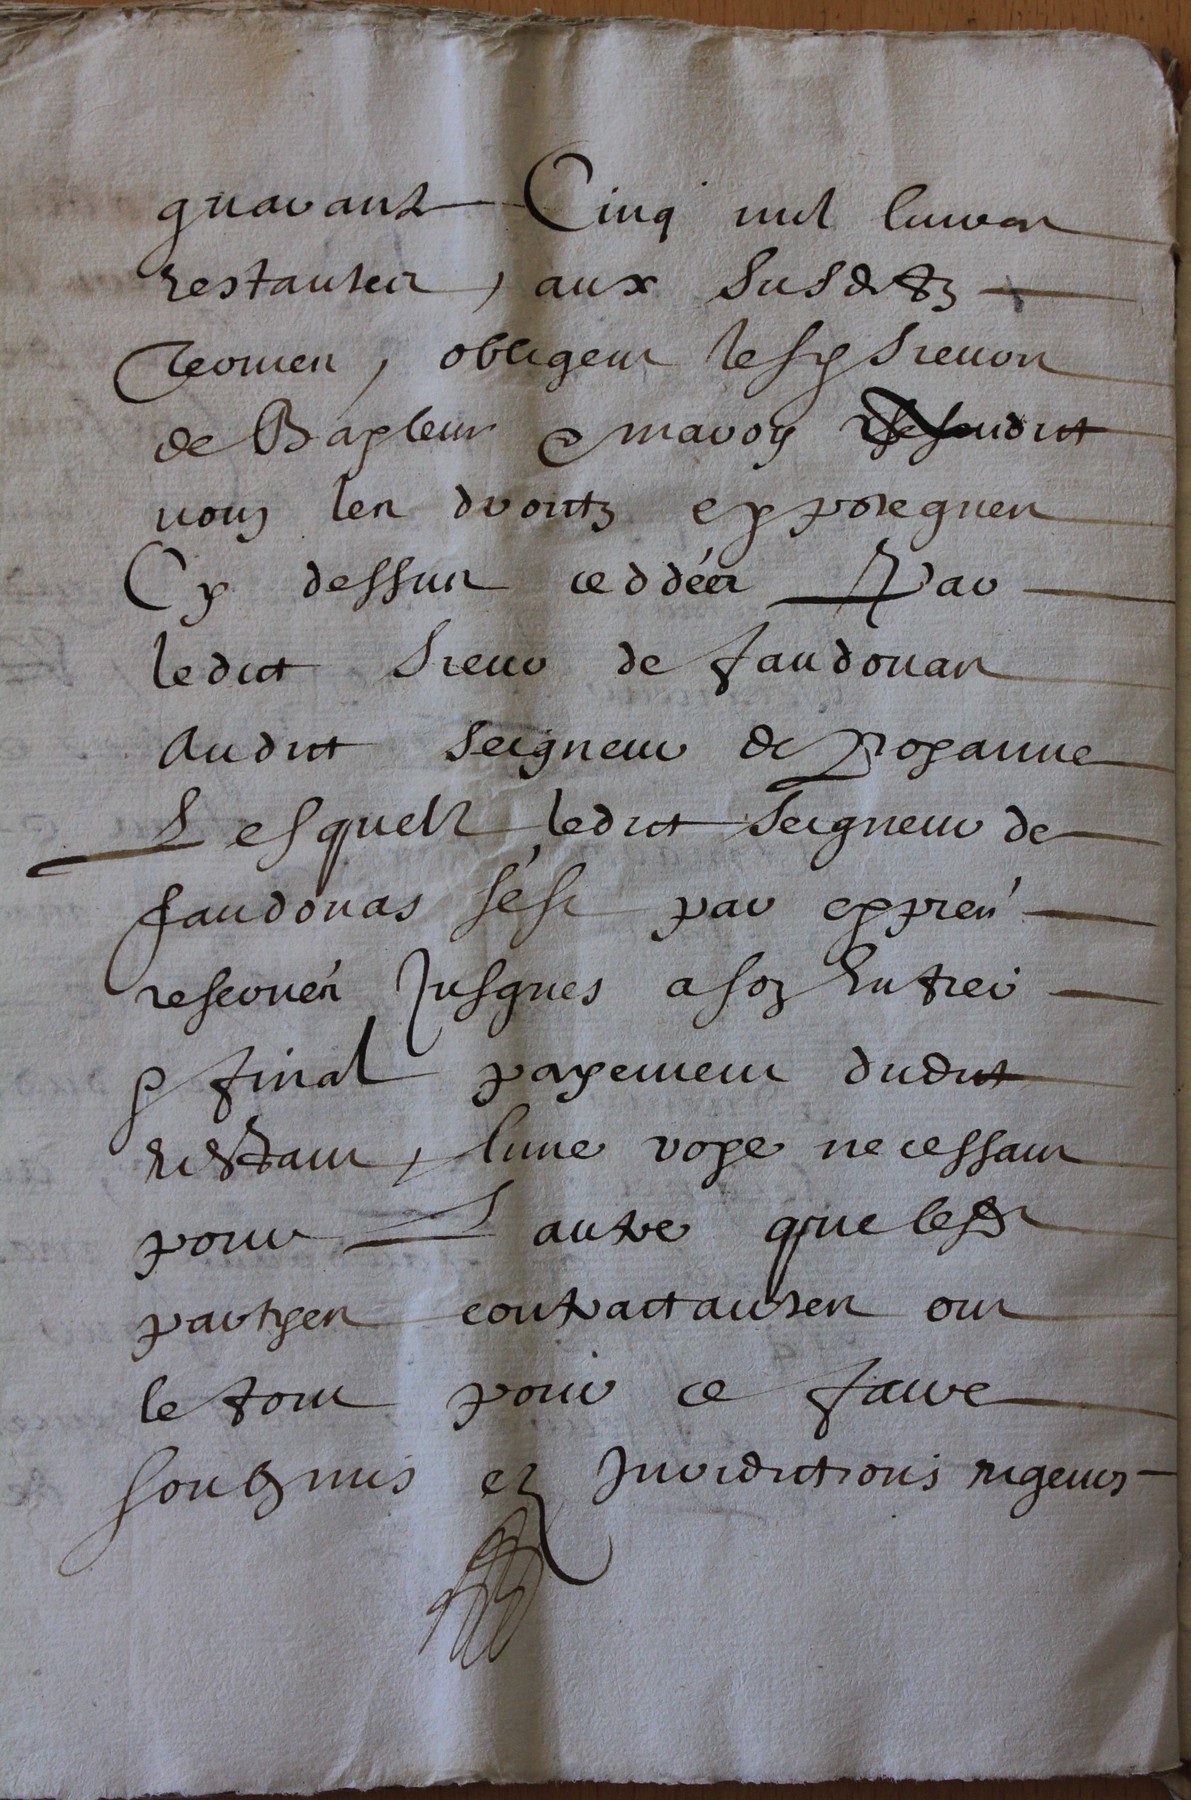 quarante Cinq mil livres
restantes, aux susditz
termes, obligent lesd Sieurs
de Bapleur & mavoy
nous les droits cy
Cy dessus ceddées Par
ledict Sieur de faudouas
Audict Seigneur de poyanne
Lesquelz ledict Seigneur de
faudouas s'est par exprés
reservés Jusques a son Entier
& final payement dudict
restant, l'une voye necessaire
pour L'autre que lesd
partyes contractantes ont
le tout pour ce faire
soubzmis ez Jurisdictions rigeurs